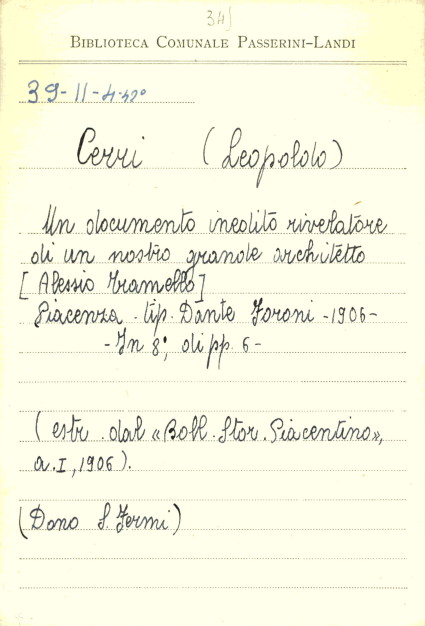 34
BIBLIOTECA COMUNALE PASSERINI-LANDI
39-11-4-32°
Cerri (Leopoldo)
Un documento inedito rivelatore
di un nostro grande architetto
[Alessio Tramello]
Piacenza. tip. Dante Foroni -1906-
- In 8°, di pp. 6 -
(estr. dal «Boll. Stor. Piacentino»,
a. I, 1906).
(Dono S. Fermi)